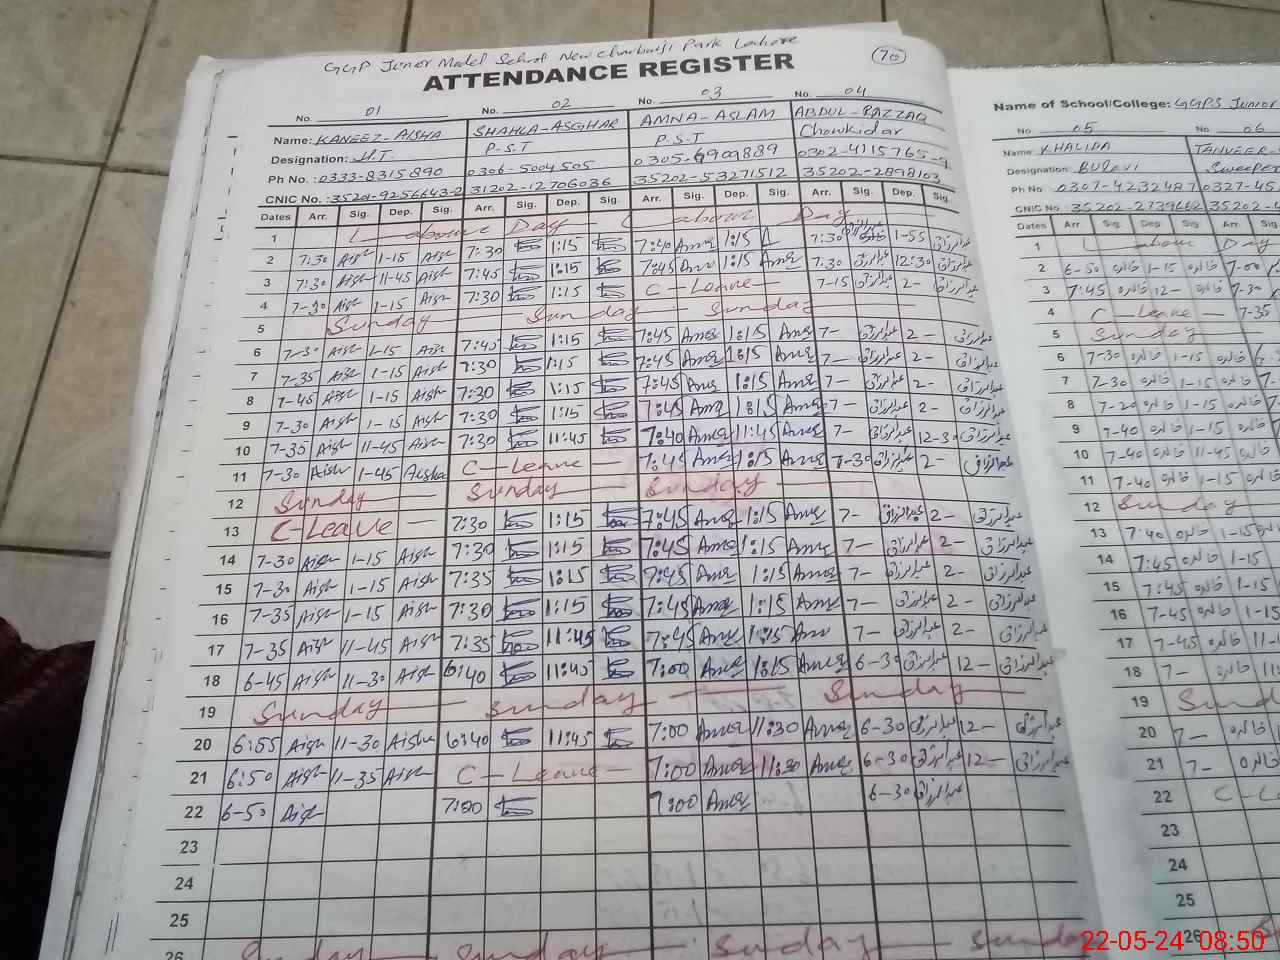 GGP Junior Model School New Chouburji Park Lahore
ATTENDANCE REGISTER
70
No. 01 No. 02 No. 03 No. 04
Name: KANEEZ-AISHA SHAHLA-ASGHAR AMNA-ASLAM ABDUL-RAZZAQ
Designation: H.T P.S.T P.S.T Chowkidar
Ph No.: 0333-8315890 0306-5004505 0305-6909889 0302-4115765-9
CNIC No.: 35201-9256643-2 31202-12706036 35202-53271512 35202-2898103
Dates Arr. Sig. Dep. Sig. Arr. Sig. Dep. Sig. Arr. Sig. Dep. Sig. Arr. Sig. Dep. Sig.
1 Labour Day Labour Day
2 7:30 Aish 1-15 Aish 7:30 1:15 7:40 Amna 1:15 7:30 عبدالرزاق 1-55 عبدالرزاق
3 7:30 Aish 11-45 Aish 7:45 1:15 7:45 Amna 1:15 Amna 7:30 عبدالرزاق 12:30 عبدالرزاق
4 7-30 Aish 1-15 Aish 7:30 1:15 C-Leave- 7-15 عبدالرزاق 2- عبدالرزاق
5 Sunday Sunday Sunday
6 7-30 Aish 1-15 Aish 7:45 1:15 7:45 Amna 1:15 Amna 7- عبدالرزاق 2- عبدالرزاق
7 7-35 Aish 1-15 Aish 7:30 1:15 7:45 Amna 1:15 Amna 7- عبدالرزاق 2- عبدالرزاق
8 7-45 Aish 1-15 Aish 7:30 1:15 7:45 Amna 1:15 Amna 7- عبدالرزاق 2- عبدالرزاق
9 7-30 Aish 1-15 Aish 7:30 1:15 7:45 Amna 1:15 Amna 7- عبدالرزاق 2- عبدالرزاق
10 7-35 Aish 11-45 Aish 7:30 11:45 7:40 Amna 11:45 Amna 7- عبدالرزاق 12-30 عبدالرزاق
11 7-30 Aish 1-45 Aisha C-Leave- 7:45 Amna 1:15 Amna 7-30 عبدالرزاق 2- عبدالرزاق
12 Sunday Sunday Sunday
13 C-Leave- 7:30 1:15 7:45 Amna 1:15 Amna 7- عبدالرزاق 2- عبدالرزاق
14 7-30 Aish 1-15 Aish 7:30 1:15 7:45 Amna 1:15 Amna 7- عبدالرزاق 2- عبدالرزاق
15 7-30 Aish 1-15 Aish 7:35 1:15 7:45 Amna 1:15 Amna 7- عبدالرزاق 2- عبدالرزاق
16 7-35 Aish 1-15 Aish 7:30 1:15 7:45 Amna 1:15 Amna 7- عبدالرزاق 2- عبدالرزاق
17 7-35 Aish 11-45 Aish 7:35 11:45 7:45 Amna 1:15 Amna 7- عبدالرزاق 2- عبدالرزاق
18 6-45 Aish 11-30 Aish 6:40 11:45 7:00 Amna 1:15 Amna 6-30 عبدالرزاق 12- عبدالرزاق
19 Sunday Sunday Sunday
20 6:55 Aish 11-30 Aisha 6:40 11:45 7:00 Amna 11:30 Amna 6-30 عبدالرزاق 12- عبدالرزاق
21 6:50 Aish 11-35 Aish C-Leave- 7:00 Amna 11:30 Amna 6-30 عبدالرزاق 12- عبدالرزاق
22 6-50 Aish 7:00 7:00 Amna 6-30 عبدالرزاق
23
24
25
26 Sunday Sunday Sunday Sunday
Name of School/College: GGPS Junior
No. 05 No. 06
Name: KHALIDA TANVEER
Designation: BUlavi Sweeper
Ph No: 0307-4232487 0327-45
CNIC No: 35202-2739662 35202-4
Dates Arr. Sig. Dep Sig. Arr. Sig
1 Labour Day
2 6-50 خالدہ 1-15 خالدہ 7-00
3 7:45 خالدہ 12- خالدہ 7-30
4 C-Leave- 7-35
5 Sunday
6 7-30 خالدہ 1-15 خالدہ
7 7-30 خالدہ 1-15 خالدہ
8 7-20 خالدہ 1-15 خالدہ
9 7-40 خالدہ 1-15 خالدہ
10 7-40 خالدہ 11-45 خالدہ
11 7-40 خالدہ 1-15 خالدہ
12 Sunday
13 7:40 خالدہ 1-15
14 7:45 خالدہ 1-15
15 7:45 خالدہ 1-15
16 7-45 خالدہ 1-15
17 7-45 خالدہ 11-
18 7- خالدہ 11-
19 Sund
20 7- خالدہ
21 7- خالدہ
22 C-L
23
24
25
26
22-05-24 08:50